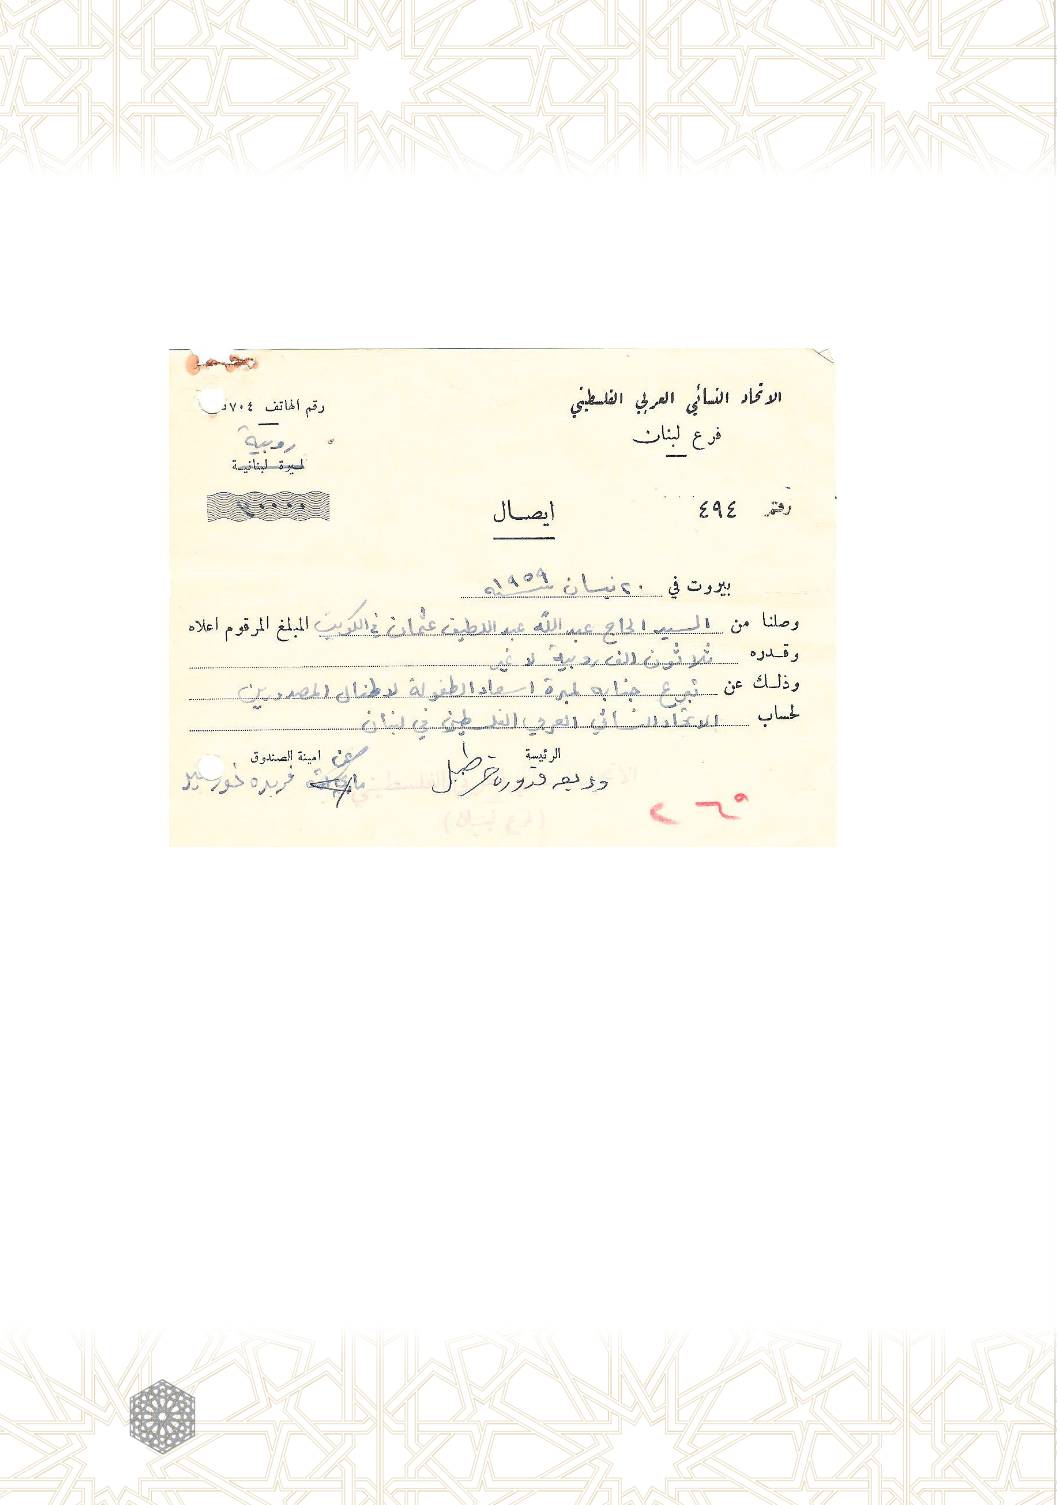 الاتحاد النسائي العربي الفلسطيني
فرع لبنان
رقم الهاتف
روبية
ليرة لبنانية
رقم ٤٩٤
ايصال
٣٠٠٠٠
بيروت في ٢٠ نيسان سنة ١٩٥٩
وصلنا من السيد الحاج عبد الله عبد اللطيف عثمان في الكويت المبلغ المرقوم اعلاه
وقدره ثلاثون الف روبية لا غير
وذلك عن تبرع جنابه لمبرة اسعاد الطفولة لاطفال المصدورين
لحساب الاتحاد النسائي العربي الفلسطيني في لبنان
الرئيسة
عن امينة الصندوق
وديعه قدوره خرطبيل
فريده خورشيد